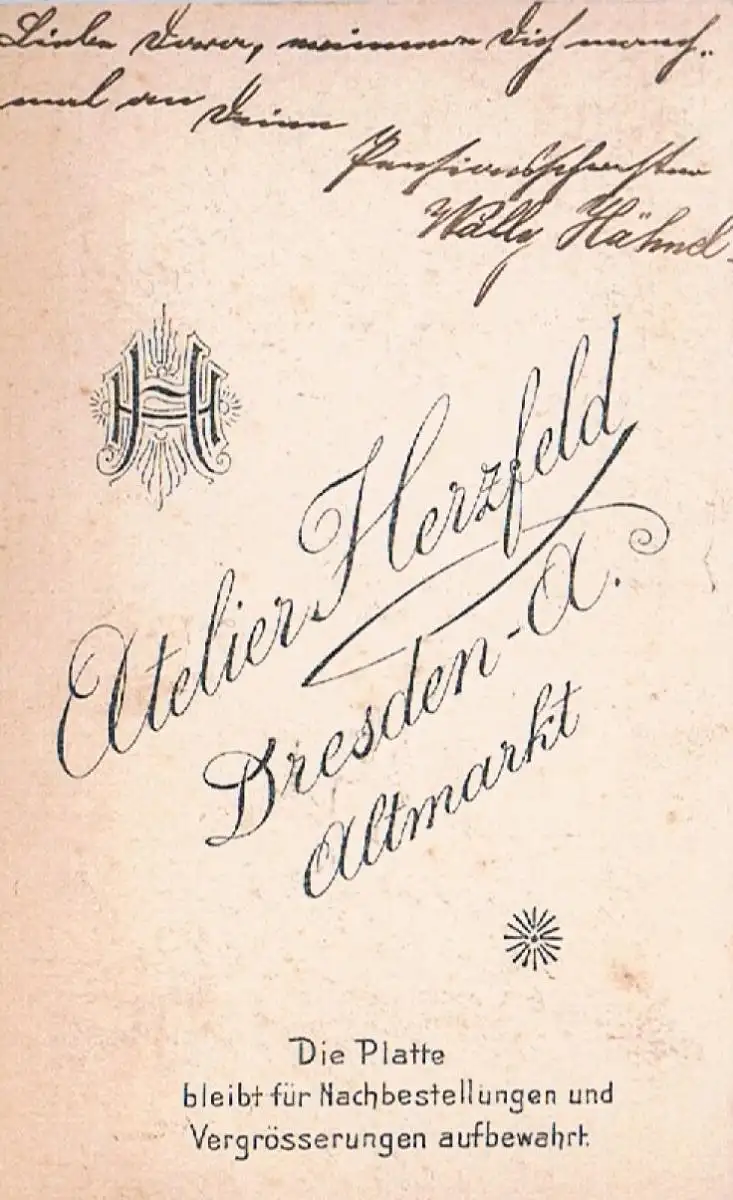 Liebe Dora, erinnere Dich manch-
mal an Deine
Pensionsschwester
Wally Hähnel.
HH
Atelier Herzfeld
Dresden-A.
Altmarkt
Die Platte
bleibt für Nachbestellungen und
Vergrösserungen aufbewahrt.